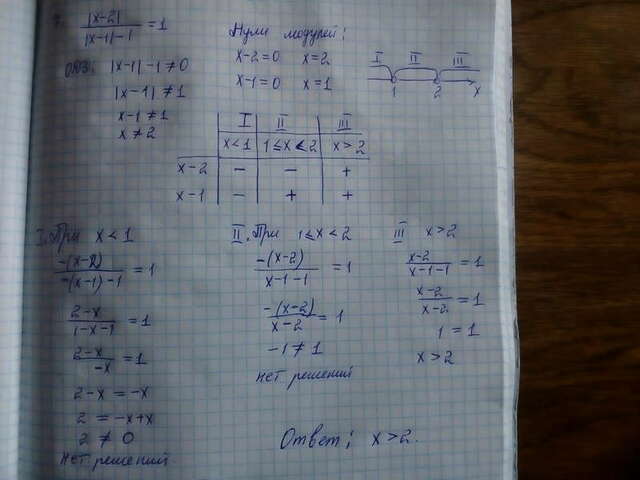 7. |x-2| / (|x-1|-1) = 1
ОДЗ: |x-1|-1≠0
|x-1|≠1
x-1≠1
x≠2
Нули модулей:
x-2=0 x=2
x-1=0 x=1
I II III
1 2 x
I II III
x<1 1≤x<2 x>2
x-2 − − +
x-1 − + +
I. При x<1
-(x-2) / (-(x-1)-1) = 1
(2-x) / (1-x-1) = 1
(2-x) / (-x) = 1
2-x=-x
2=-x+x
2≠0
нет решений
II. При 1≤x<2
-(x-2) / (x-1-1) = 1
-(x-2) / (x-2) = 1
-1≠1
нет решений
III x>2
(x-2) / (x-1-1) = 1
(x-2) / (x-2) = 1
1=1
x>2
Ответ: x>2.